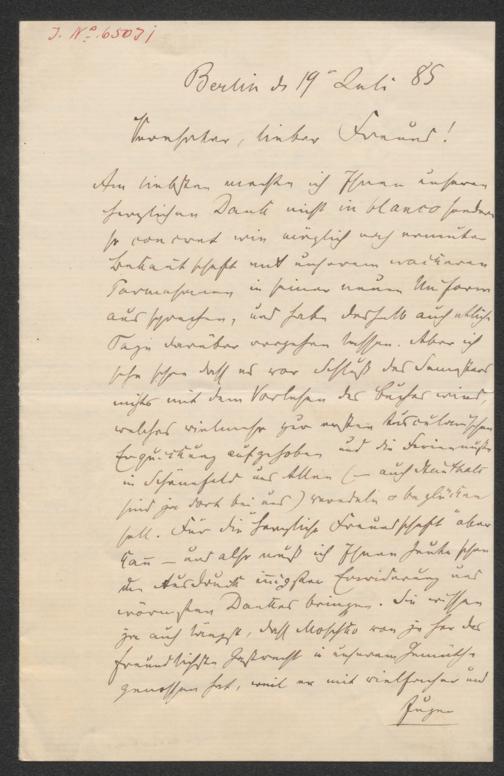 J. No. 65071
Berlin d. 19n Juli 85
Verehrter, lieber Freund!
Am liebsten möchte ich Ihnen unseren
herzlichen Dank nicht in blanco sondern
so concret wie möglich nach erneuter
Bekanntschaft mit unserem wackeren
in seiner neuen Uniform
aussprechen, und habe deshalb auch etliche
Tage darüber vergehen lassen. Aber ich
sehe schon daß es vor Schluß des Semesters
nichts mit dem Vorlesen des Buches wird,
welches vielmehr zur ersten
Erquickung aufgehoben und die
in Schönefeld uns Allen (— auch
sind ja dort bei uns) veredeln & beglücken
soll. Für die herzliche Freundschaft aber
kann — und also muß ich Ihnen heute schon
den Ausdruck innigster Erwiderung und
wärmsten Dankes bringen. Sie wissen
ja auch längst, daß von je her das
freundlichste Gastrecht in unserem Gemüthe
genossen hat, weil er mit vielfacher und